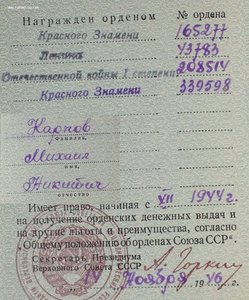 Награжден орденом № ордена
Красного Знамени 165277
Ленина 43783
Отечественной войны I степени 208514
Красного Знамени 339598
Карпов
фамилия,
Михаил
имя,
Никитич
отчество
Имеет право, начиная с VII 1944 г.
на получение орденских денежных выдач и
на другие льготы и преимущества, согласно
„Общему положению об орденах Союза ССР“.
Секретарь Президиума
Верховного Совета СССР А. Горкин
ноября 1946 г.